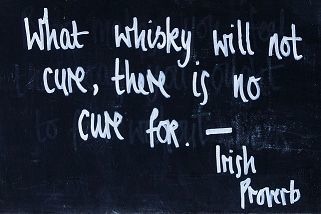 What whisky will not
cure, there is no
cure for. —
Irish
Proverb